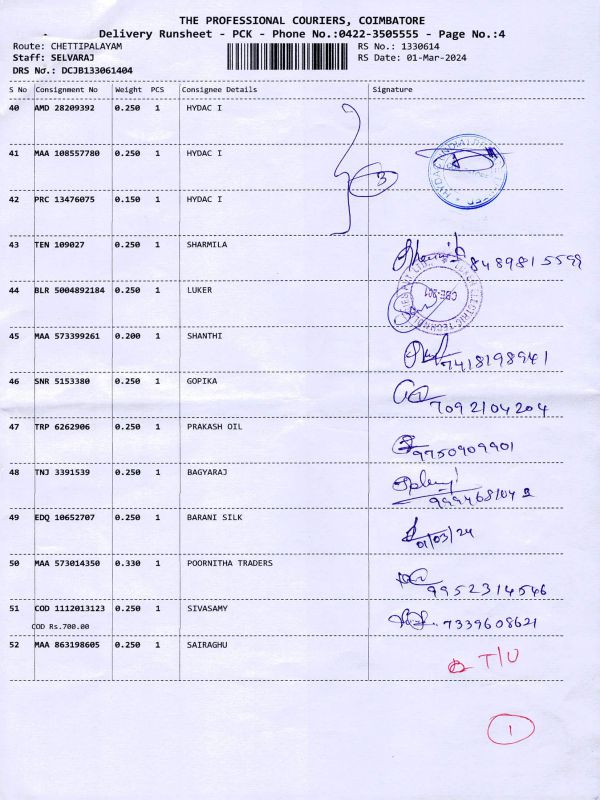 THE PROFESSIONAL COURIERS, COIMBATORE
Delivery Runsheet - PCK - Phone No.:0422-3505555 - Page No.:4
Route: CHETTIPALAYAM RS No.: 1330614
Staff: SELVARAJ RS Date: 01-Mar-2024
DRS No.: DCJB133061404
S No Consignment No Weight PCS Consignee Details Signature
40 AMD 28209392 0.250 1 HYDAC I
41 MAA 108557780 0.250 1 HYDAC I
3
42 PRC 13476075 0.150 1 HYDAC I
43 TEN 109027 0.250 1 SHARMILA
8489815599
44 BLR 5004892184 0.250 1 LUKER
CBE-201
45 MAA 573399261 0.200 1 SHANTHI
7418198941
46 SNR 5153380 0.250 1 GOPIKA
7092104204
47 TRP 6262906 0.250 1 PRAKASH OIL
9750909901
48 TNJ 3391539 0.250 1 BAGYARAJ
49 EDQ 10652707 0.250 1 BARANI SILK
01/03/24
50 MAA 573014350 0.330 1 POORNITHA TRADERS
9952314546
51 COD 1112013123 0.250 1 SIVASAMY
7339608621
COD Rs.700.00
52 MAA 863198605 0.250 1 SAIRAGHU
T/U
1